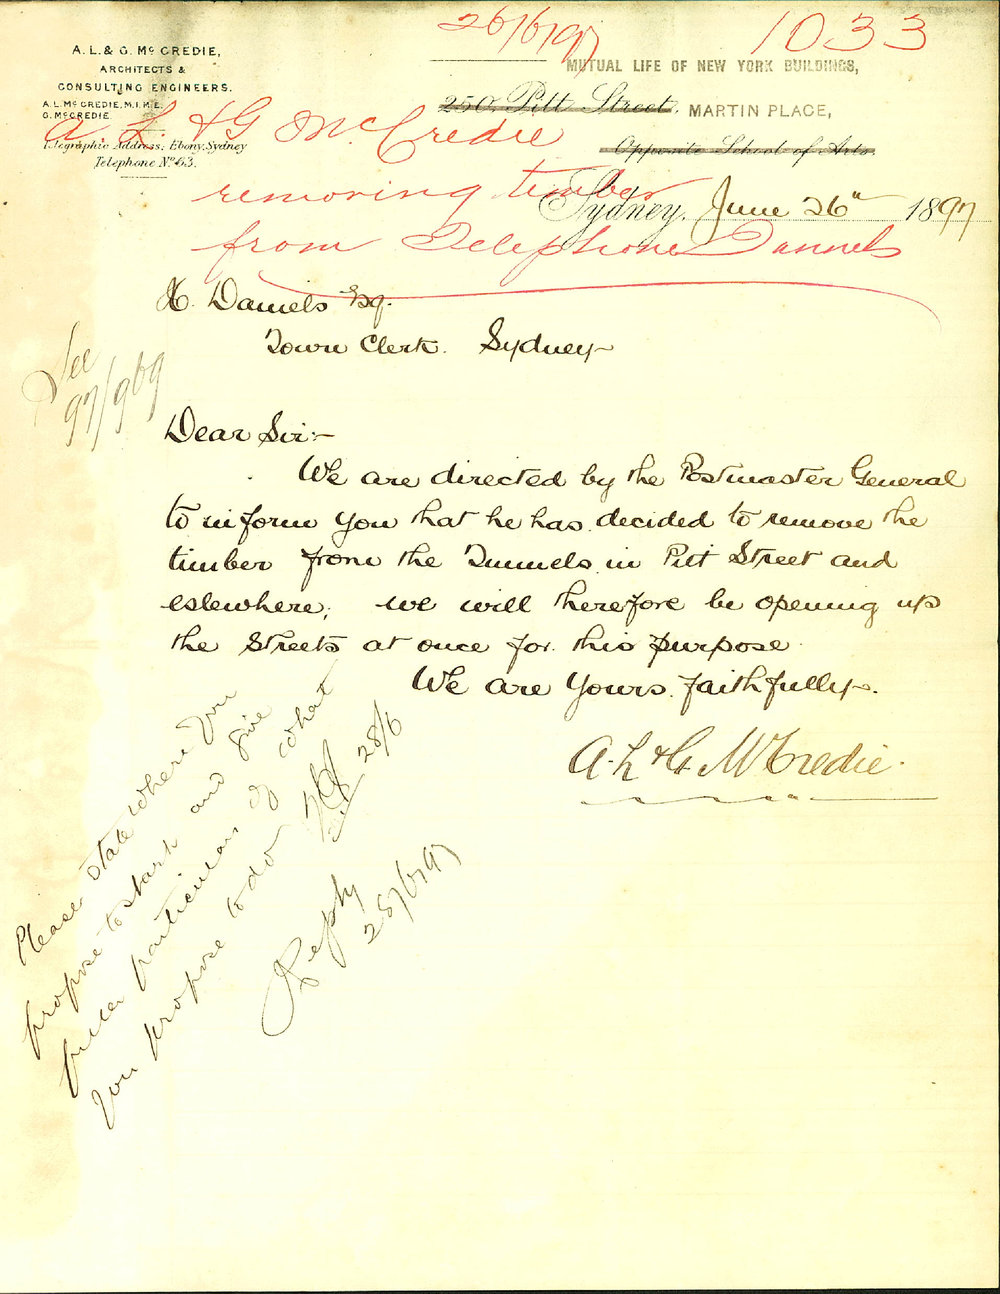 26/6/97
1033
A. L. & G. Mc CREDIE,
ARCHITECTS &
CONSULTING ENGINEERS.
A. L. Mc CREDIE, M.I.M.E.
G. McCREDIE
Telegraphic Address: Ebony, Sydney
Telephone No 63.
MUTUAL LIFE OF NEW YORK BUILDINGS,
250 Pitt Street. MARTIN PLACE,
Opposite School of Arts.
A. L. & G McCredie
removing timber
from Telephone Tunnels
Sydney, June 26th 1897
H. Daniels Esq.
Town Clerk. Sydney
See
97/969
Dear Sir:-
We are directed by the Postmaster General
to inform you that he has decided to remove the
timber from the Tunnels in Pitt Street and
eslewhere; we will therefore be opening up
the Streets at once for this purpose
We are Yours faithfully.
A. L & G. McCredie.
Please state where you
propose to start and give
fuller particulars of what
you propose to do
28/6
Reply
28/6/97